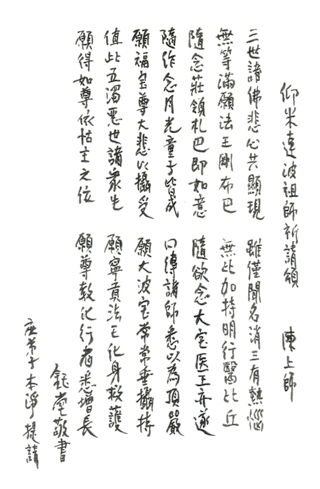 仰米達波祖師祈請頌　陳上師
三世諸佛悲心共顯現　雖僅聞名消三有熱惱
無等滿願法王剛布巴　無比加持明行醫比丘
隨念莊領札巴即如意　隨欲念大宝医王亦遂
隨作念月光童子皆成　口傳諸師悉以為頂嚴
願福宝尊大悲以攝受　願大波宝常常垂攝持
值此五濁惡世諸眾生　願寧貢法王化身救護
願得如尊依怙主之位　願尊教化行者悉增長
敬書
应弟子本淨提請